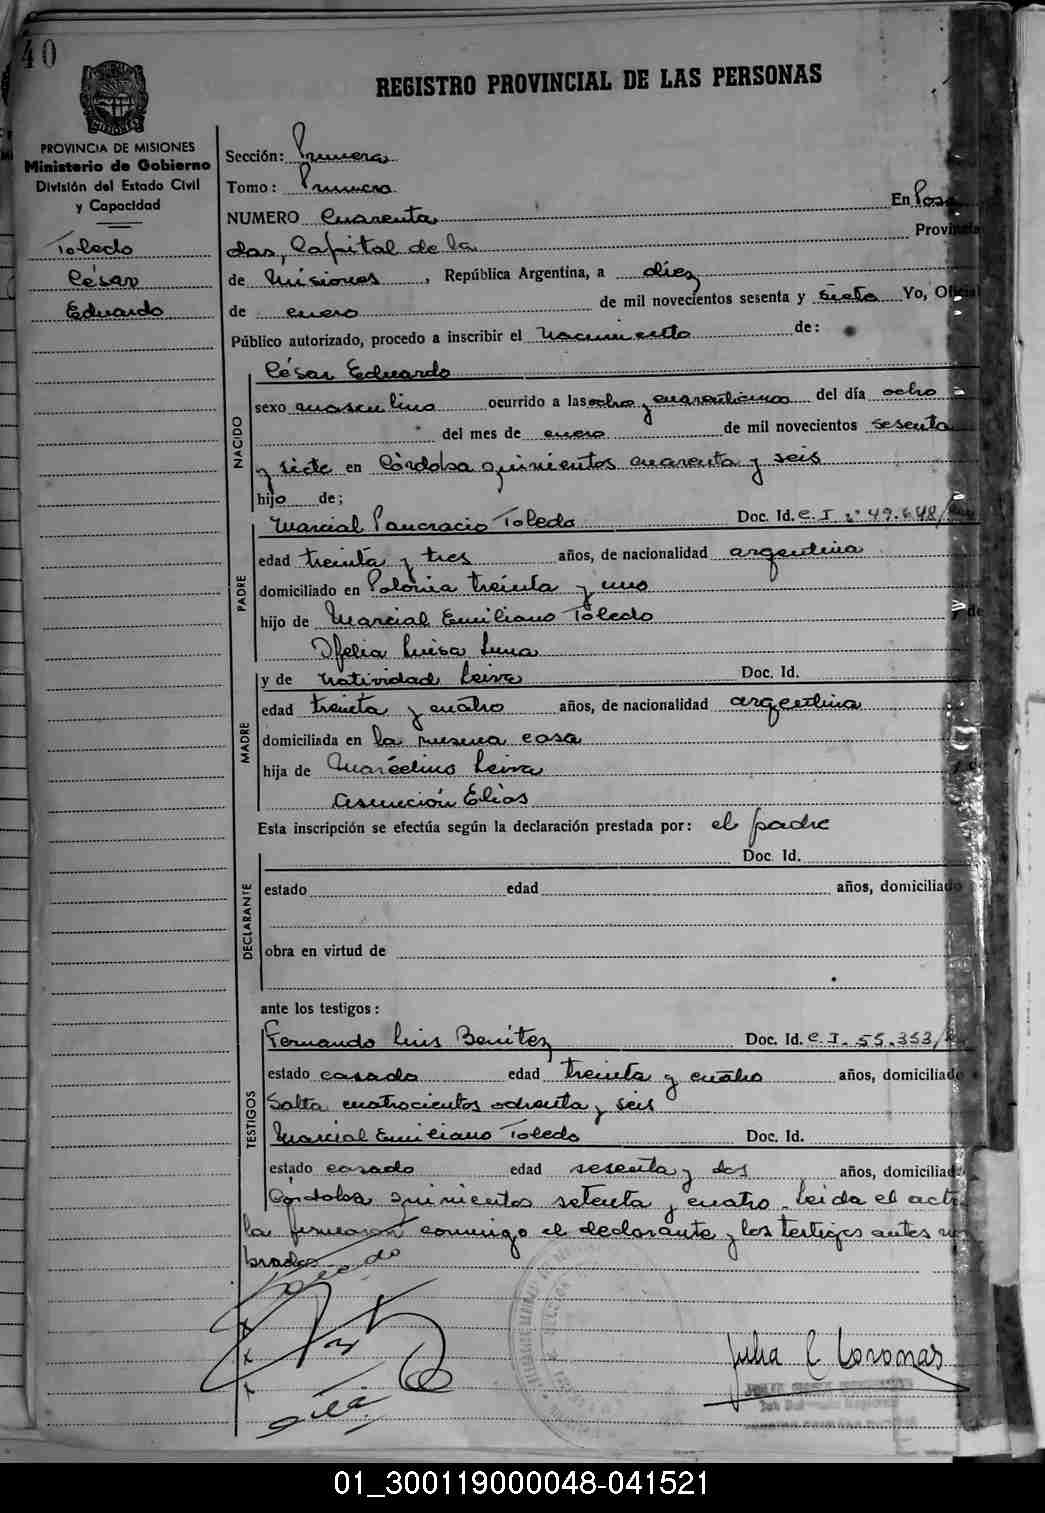 40
REGISTRO PROVINCIAL DE LAS PERSONAS
PROVINCIA DE MISIONES
Ministerio de Gobierno
División del Estado Civil
y Capacidad
Toledo
César
Eduardo
Sección: Primera
Tomo: Primero
NUMERO Cuarenta En Posa
das, Capital de la Provincia
de Misiones, República Argentina, a diez
de enero de mil novecientos sesenta y siete Yo, Oficial
Público autorizado, procedo a inscribir el nacimiento de:
NACIDO
César Eduardo
sexo masculino ocurrido a las ocho y cuarenticinco del día ocho
del mes de enero de mil novecientos sesenta
y siete en Córdoba quinientos cuarenta y seis
hijo de;
PADRE
Marcial Pancracio Toledo Doc. Id. C.I. 49.648/
edad treinta y tres años, de nacionalidad argentina
domiciliado en Polonia treinta y uno
hijo de Marcial Emiliano Toledo y de
Ofelia Luisa Luna
MADRE
y de Natividad Leiva Doc. Id.
edad treinta y cuatro años, de nacionalidad argentina
domiciliada en la misma casa
hija de Marcelino Leiva
Asunción Elías
Esta inscripción se efectúa según la declaración prestada por: el padre
DECLARANTE
Doc. Id.
estado edad años, domiciliado
obra en virtud de
ante los testigos:
TESTIGOS
Fernando Luis Benítez Doc. Id. C.I. 55.353/
estado casado edad treinta y cuatro años, domiciliado
Salta cuatrocientos ochenta y seis
Marcial Emiliano Toledo Doc. Id.
estado casado edad sesenta y dos años, domiciliad
Córdoba quinientos setenta y cuatro. Leida el acta
la firmaron conmigo el declarante y los testigos antes nom
brados
Julia C Coronas
01_300119000048-041521